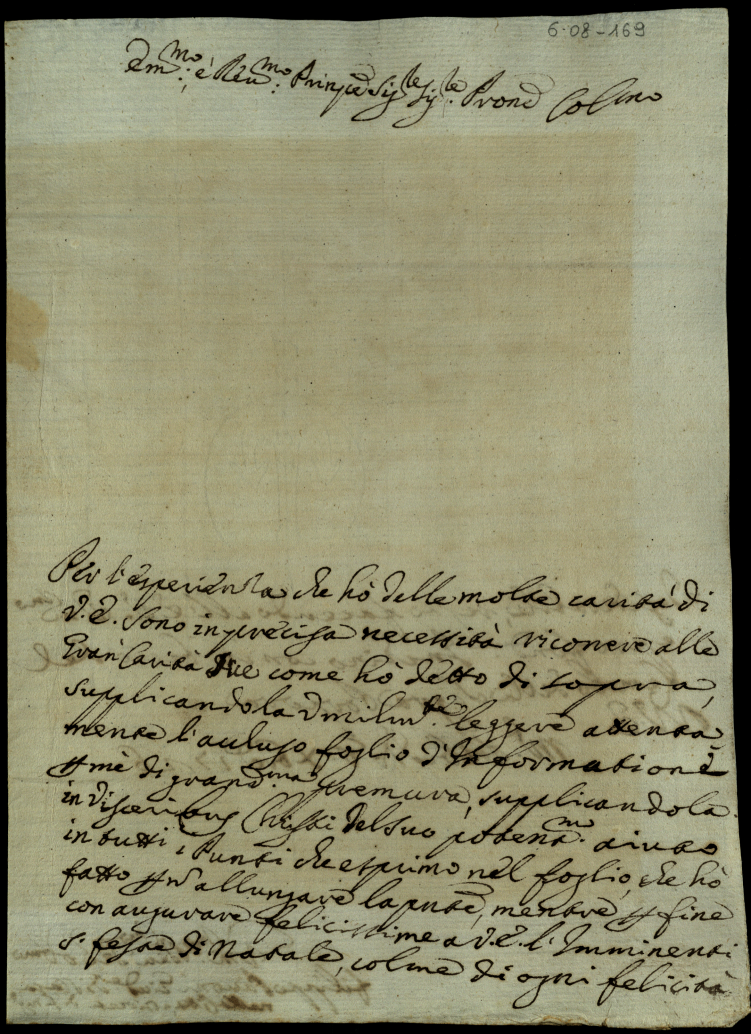 6-08-169
Em.mo è Reu.mo Prinpe Sig.re Sig.re Prone Col.mo
Per l'esperienza che hò delle molte carità di
V.E. sono in precisa necessità ricorrere alle
Gran Carità Sue come hò detto di sopra,
supplicandola Vmilm.te leggere attenta-
mente l'acluso foglio d'Informatione
mè di grand.ma premura, supplicandola
in visceribus Christi del suo potent.mo aiuto
in tutti i Punti che esprimo nel foglio, che hò
fatto allungare la pnte, mentre fine
con augurare felicissime a V.E. l'Imminenti
s. feste di Natale, colme di ogni felicità